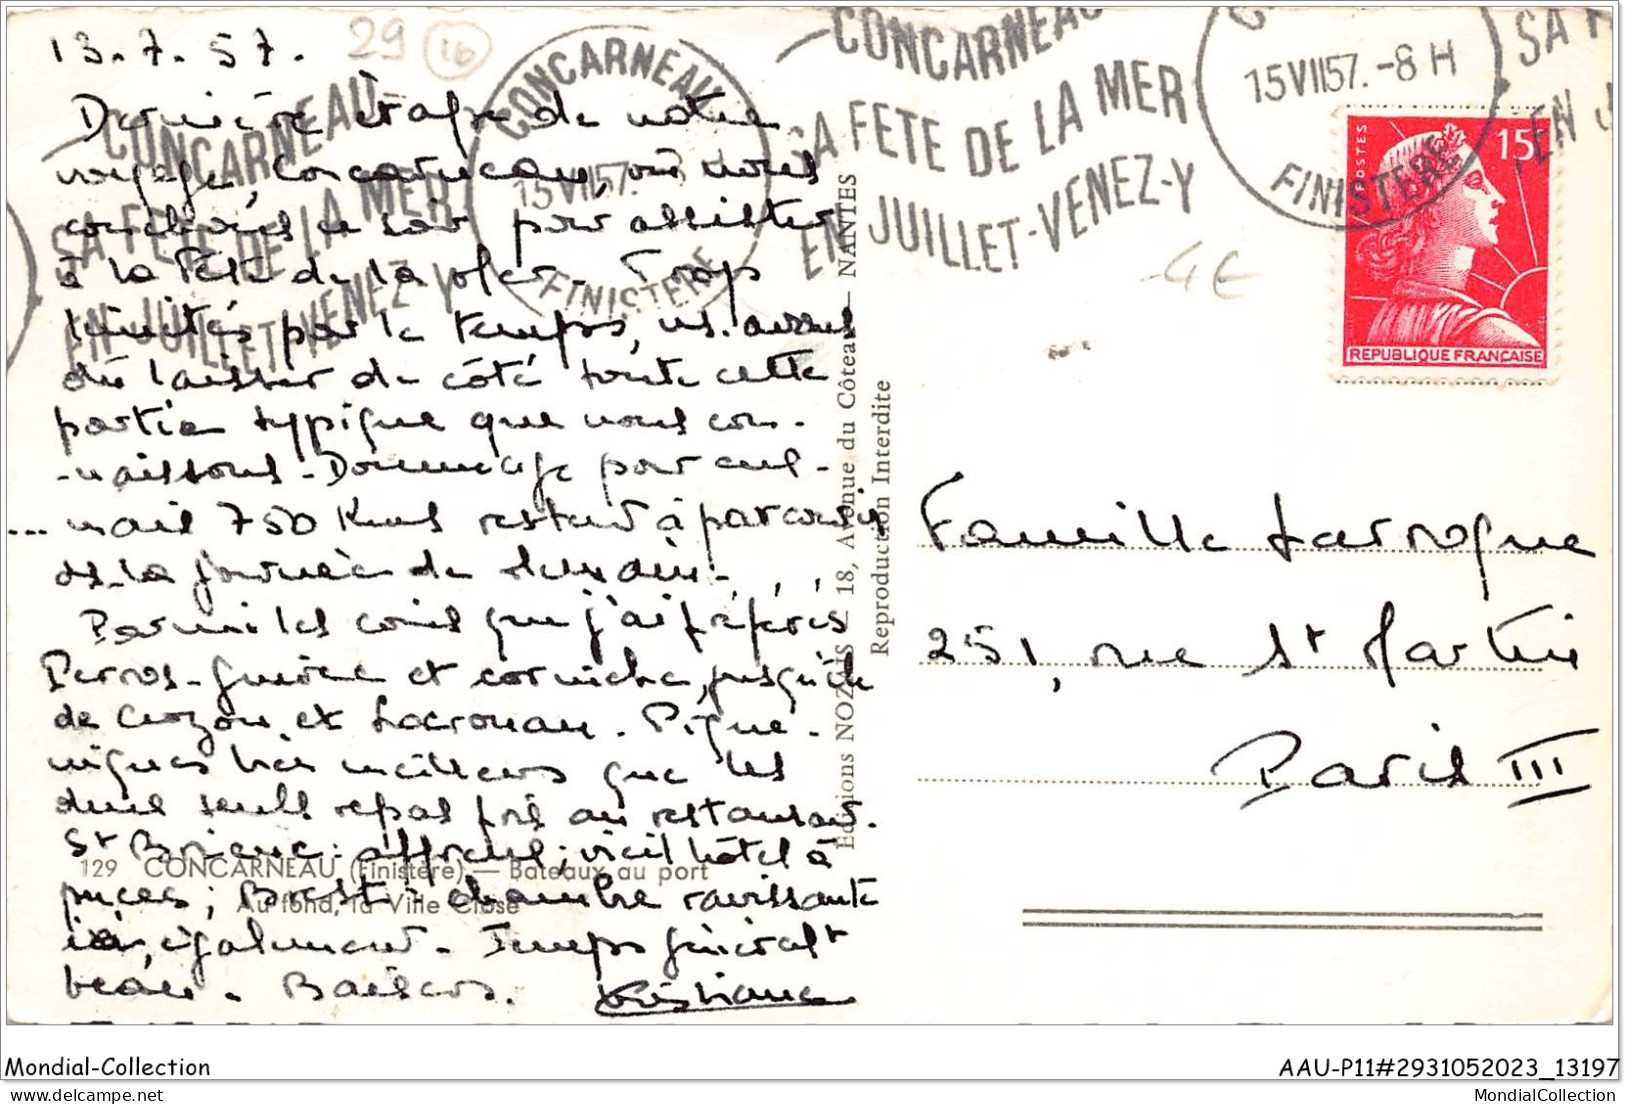 13.7.57.
29
16
Dernière étape de notre
voyage, Concarneau, où nous
couchons ce soir pour assister
à la Fête de la Mer. Trop
limités par le temps, ns. avons
dû laisser de côté toute cette
partie typique que nous con-
-naissons. Dommage pour
... mais 750 Kms restent à parcourir
ds. la journée de demain.
Parmi les coins que j'ai préférés
Perros-Guirec et corniche, presqu'île
de Crozon et Locronan. Pique-
niques bien meilleurs que les
deux seuls repas pris au restaurant.
St Brieuc: affreux; vieil hôtel à
puces; Brest: chambre ravissante
ici, également. Temps général t
beau. Baisers. Christiane
CONCARNEAU
SA FETE DE LA MER
EN JUILLET-VENEZ-Y
CONCARNEAU
15 VII 57.
FINISTERE
CONCARNEAU
SA FETE DE LA MER
EN JUILLET-VENEZ-Y
15 VII 57. -8 H
FINISTERE
SA F
EN J
POSTES
15F
REPUBLIQUE FRANÇAISE
4€
Editions NOZAIS - 18, Avenue du Côteau - NANTES
Reproduction Interdite
Famille Larroque
251, rue St Martin
Paris III
129 CONCARNEAU (Finistère) — Bateaux au port
Au fond, la Ville Close
Mondial-Collection
AAU-P11#2931052023_13197
MondialCollection.com
MondialCollection.com